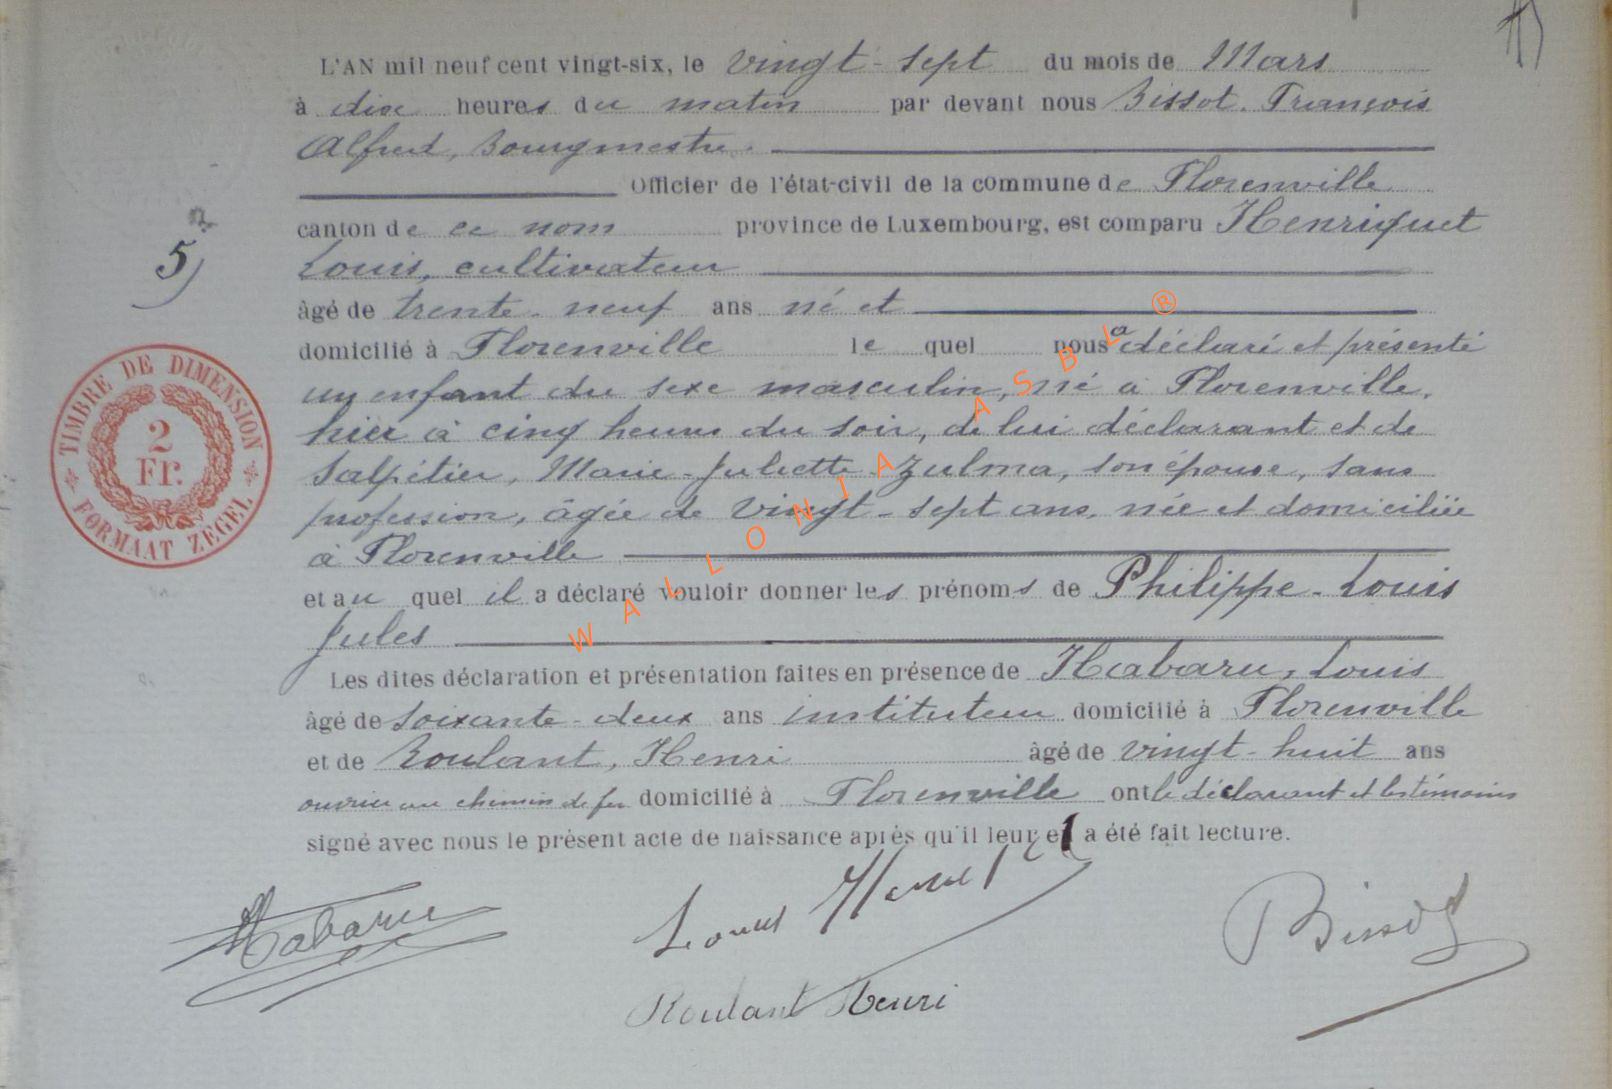 L'AN mil neuf cent vingt-six, le vingt-sept du mois de Mars
à dix heures du matin par devant nous Bissot. François
Alfred, Bourgmestre.
Officier de l'état-civil de la commune de Florenville
canton de ce nom province de Luxembourg, est comparu Henriquet
Louis, cultivateur
âgé de trente-neuf ans né et
domicilié à Florenville le quel nous a déclaré et présenté
un enfant du sexe masculin, né à Florenville,
hier à cinq heures du soir, de lui déclarant et de
Salpétier, Marie-Juliette-Azulma, son épouse, sans
profession, âgée de vingt-sept ans, née et domiciliée
à Florenville
et au quel il a déclaré vouloir donner les prénoms de Philippe-Louis
Jules
Les dites déclaration et présentation faites en présence de Habaru, Louis
âgé de soixante-deux ans instituteur domicilié à Florenville
et de Roulant, Henri âgé de vingt-huit ans
ouvrier au chemin de fer domicilié à Florenville ont le déclarant et les témoins
signé avec nous le présent acte de naissance après qu'il leur en a été fait lecture.
Habaru
Louis
Bissot
Roulant Henri
5
TIMBRE DE DIMENSION
2
Fr.
FORMAAT ZEGEL
WALLONIA ASBL ®